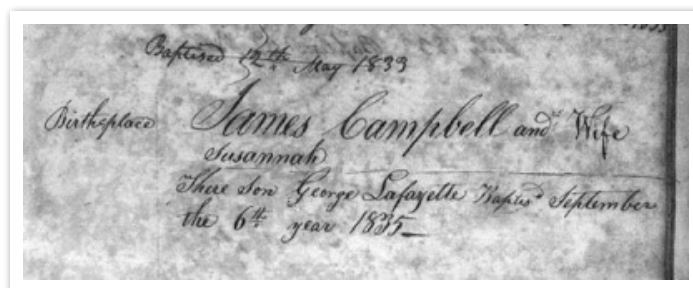 1833
Baptised 12th May 1833
Birtheplace James Campbell and Wife
Susannah
There Son George Lafayette Baptisd September
the 6th year 1835